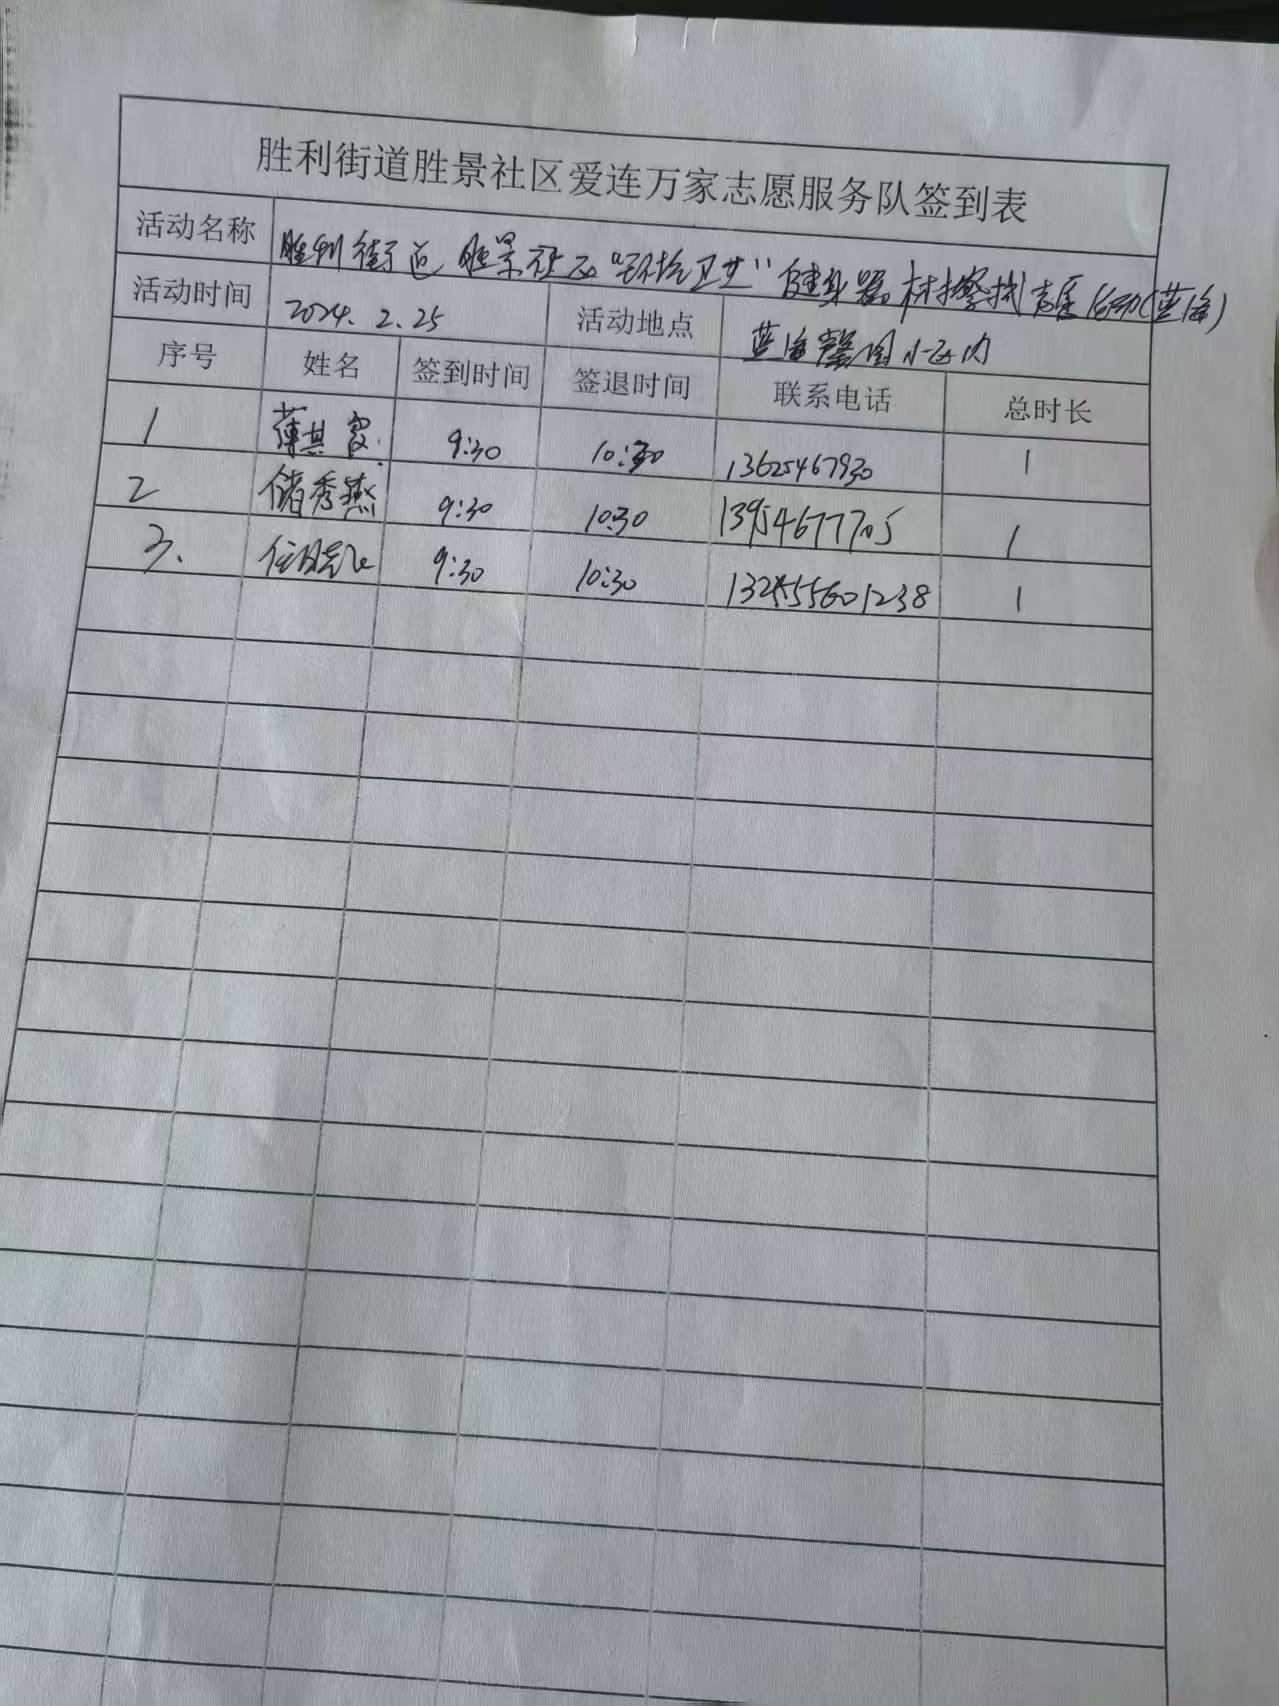 胜利街道胜景社区爱连万家志愿服务队签到表
活动名称 胜利街道胜景社区"环境卫生"健身器材擦拭志愿活动(蓝海)
活动时间 2024.2.25 活动地点 蓝海馨园小区内
序号 姓名 签到时间 签退时间 联系电话 总时长
1 薄其 9:30 10:30 13625467930 1
2 储秀燕 9:30 10:30 13954677705 1
3. 任晓飞 9:30 10:30 1